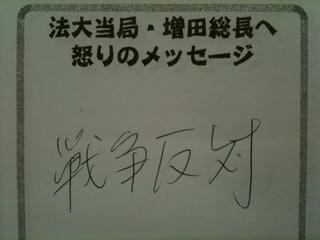 法大当局・増田総長へ
怒りのメッセージ
戦争反対